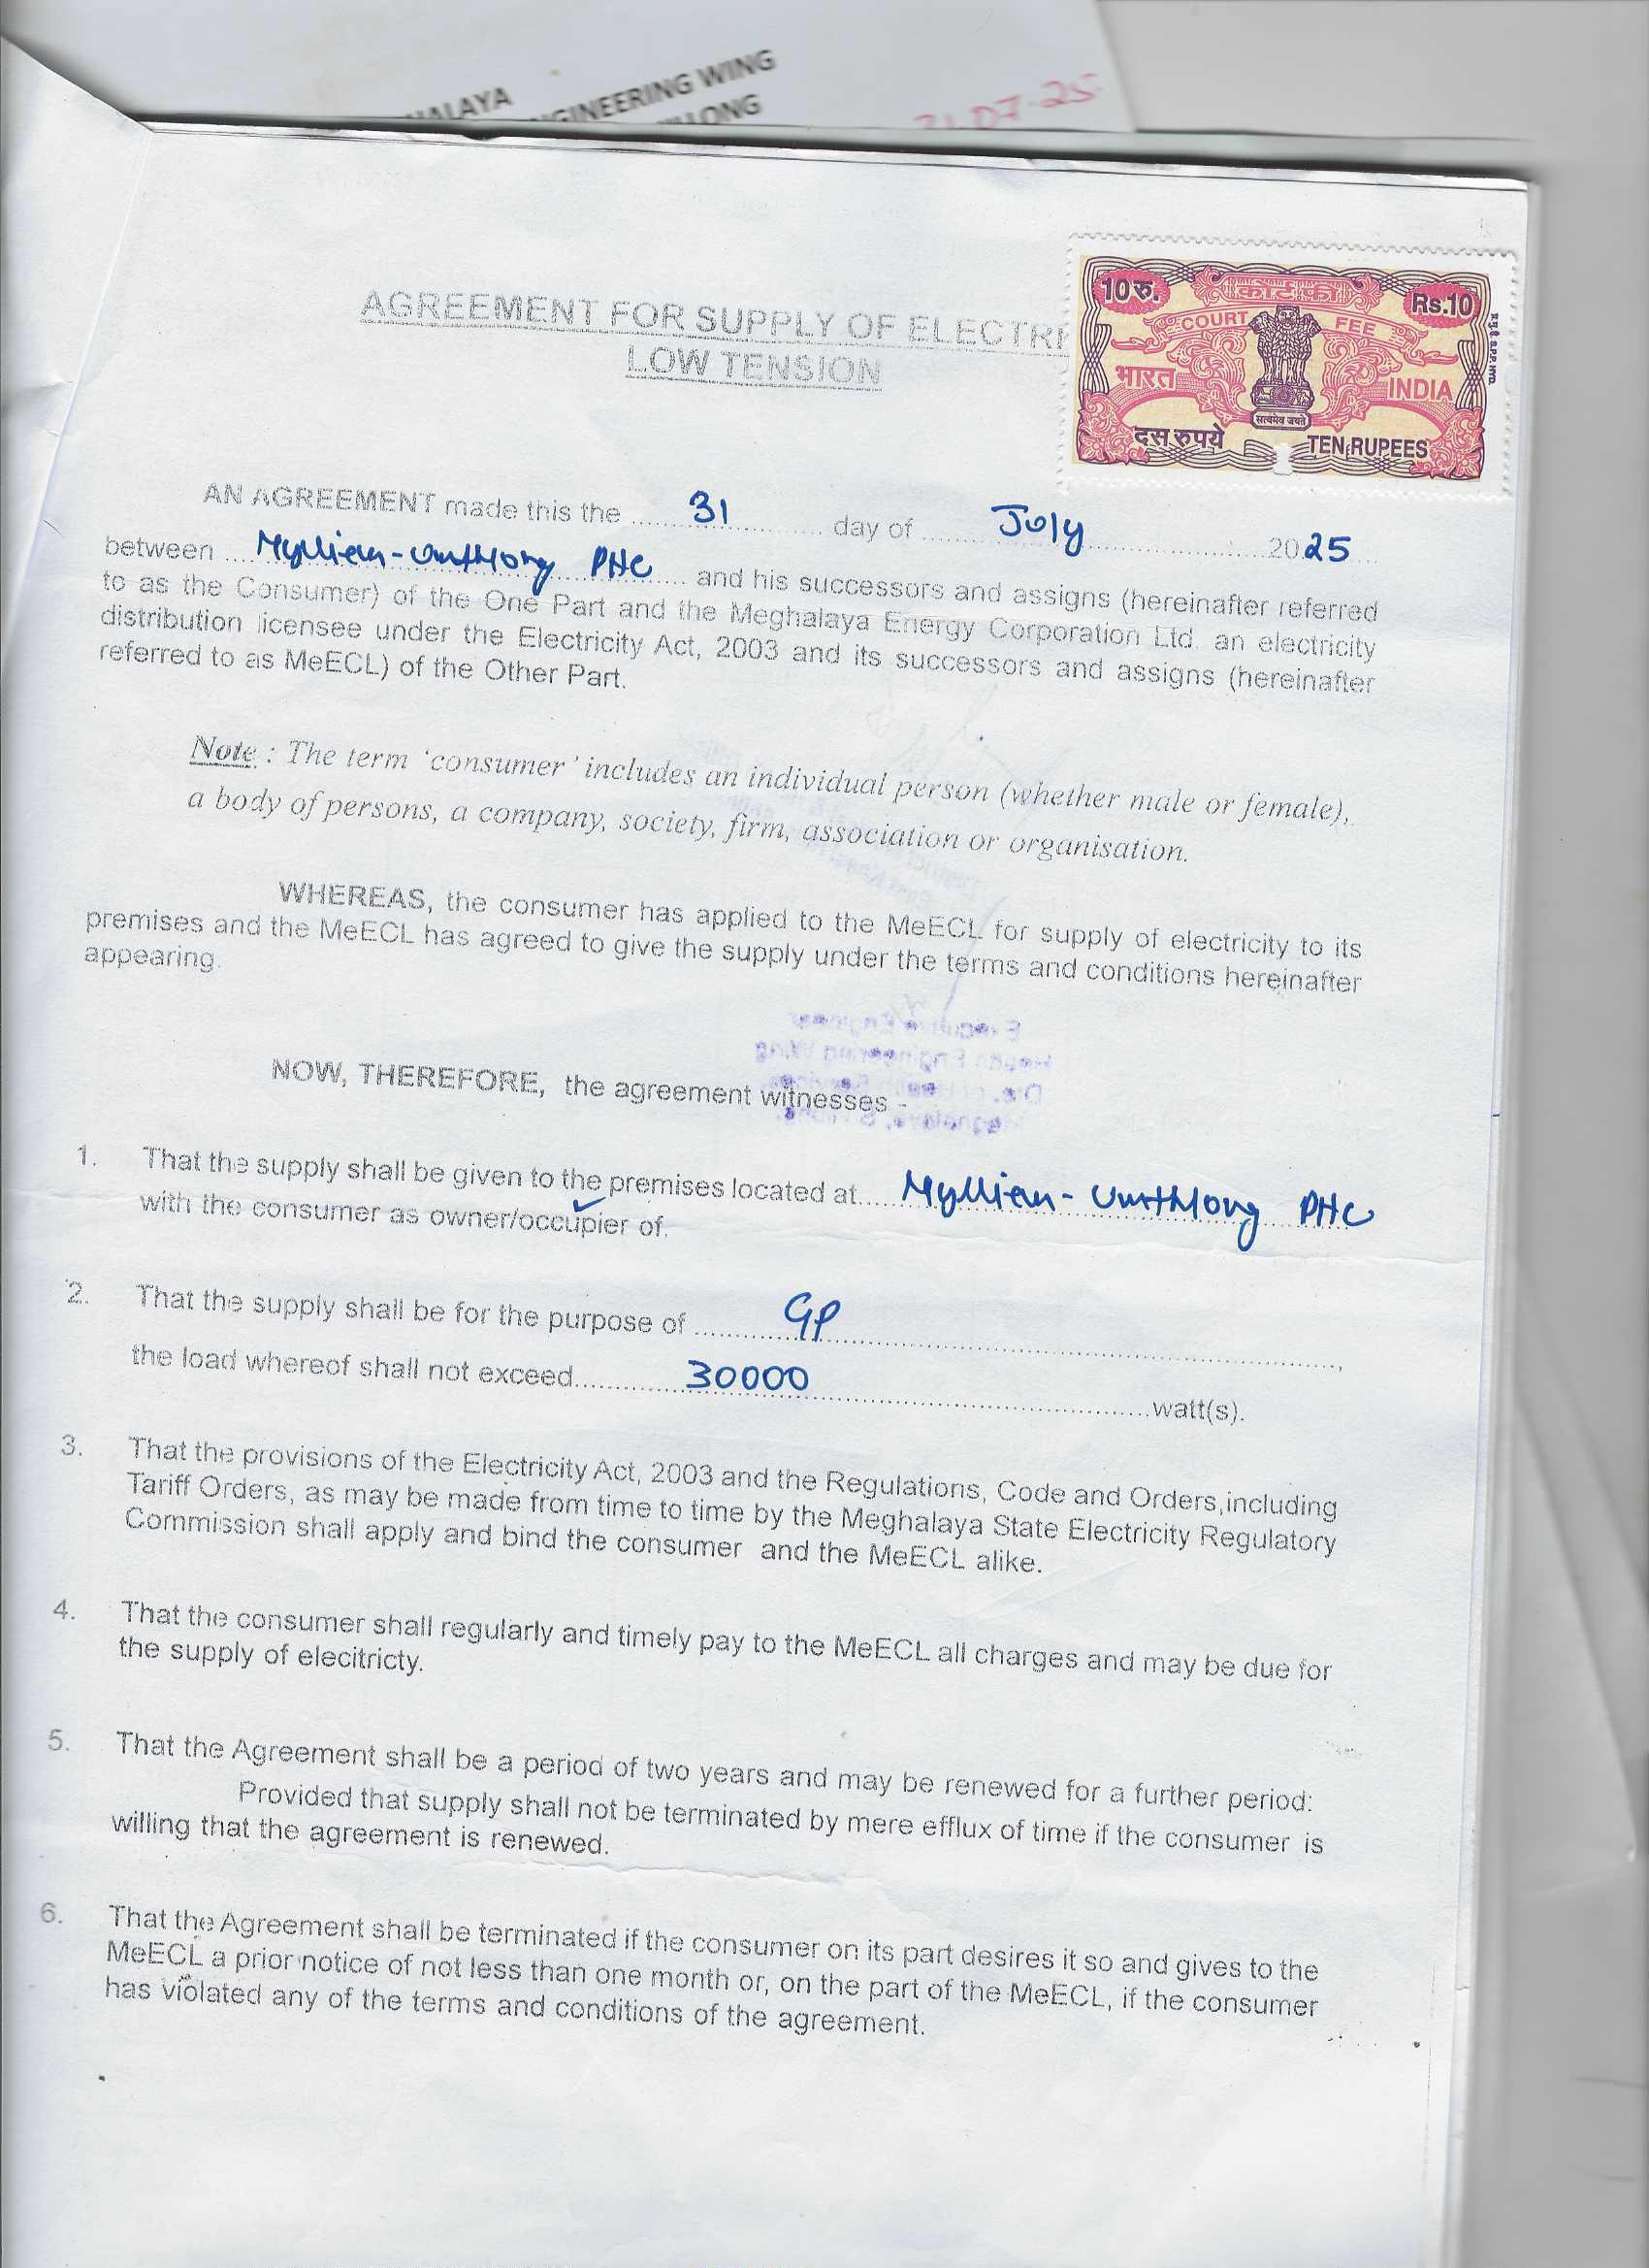 HALAYA
NGINEERING WING
LONG
07-25
AGREEMENT FOR SUPPLY OF ELECTRI
LOW TENSION
10रु.
कोर्ट फी
Rs.10
COURT FEE
भारत
INDIA
सत्यमेव जयते
दस रुपये
TEN RUPEES
AN AGREEMENT made this the 31 day of July 2025
between Myllien-Umthlong PHC and his successors and assigns (hereinafter referred
to as the Consumer) of the One Part and the Meghalaya Energy Corporation Ltd. an electricity
distribution licensee under the Electricity Act, 2003 and its successors and assigns (hereinafter
referred to as MeECL) of the Other Part.
Note : The term ‘consumer’ includes an individual person (whether male or female),
a body of persons, a company, society, firm, association or organisation.
WHEREAS, the consumer has applied to the MeECL for supply of electricity to its
premises and the MeECL has agreed to give the supply under the terms and conditions hereinafter
appearing.
NOW, THEREFORE, the agreement witnesses -
1. That the supply shall be given to the premises located at.... Myllien-Umthlong PHC
with the consumer as owner/occupier of.
2. That the supply shall be for the purpose of GP ,
the load whereof shall not exceed 30000 watt(s).
3. That the provisions of the Electricity Act, 2003 and the Regulations, Code and Orders,including
Tariff Orders, as may be made from time to time by the Meghalaya State Electricity Regulatory
Commission shall apply and bind the consumer and the MeECL alike.
4. That the consumer shall regularly and timely pay to the MeECL all charges and may be due for
the supply of elecitricty.
5. That the Agreement shall be a period of two years and may be renewed for a further period:
Provided that supply shall not be terminated by mere efflux of time if the consumer is
willing that the agreement is renewed.
6. That the Agreement shall be terminated if the consumer on its part desires it so and gives to the
MeECL a prior notice of not less than one month or, on the part of the MeECL, if the consumer
has violated any of the terms and conditions of the agreement.